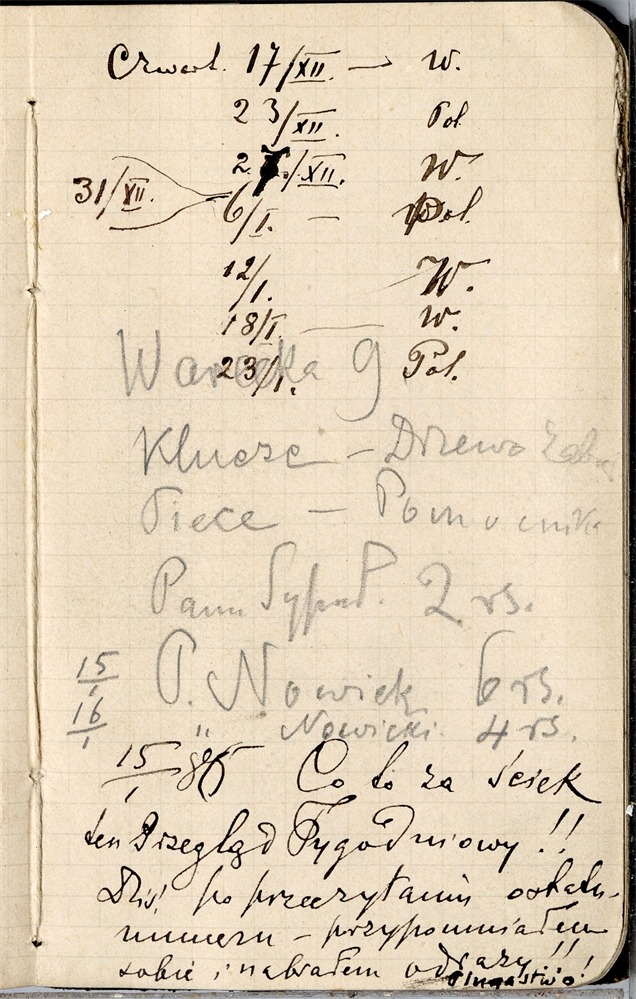 Czwart. 17/XII — W.
23/XII. Pol.
2 /XII. W.
31/XII.
6/I. — Pol.
12/I. W.
18/I. — W.
23/I. Pol.
Warecka 9.
Klucze – Drzewo
Piece –
Pani 2 rs.
15/1 P. Nowick 6 rs.
16/1 " Nowicki 4 rs.
15/1 86 Co to za ściek
ten Przegląd Tygodniowy!!
Dziś, po przeczytaniu ostatn.
numeru – przypomniałem
sobie i nabrałem odrazy!!
Plugastwo!